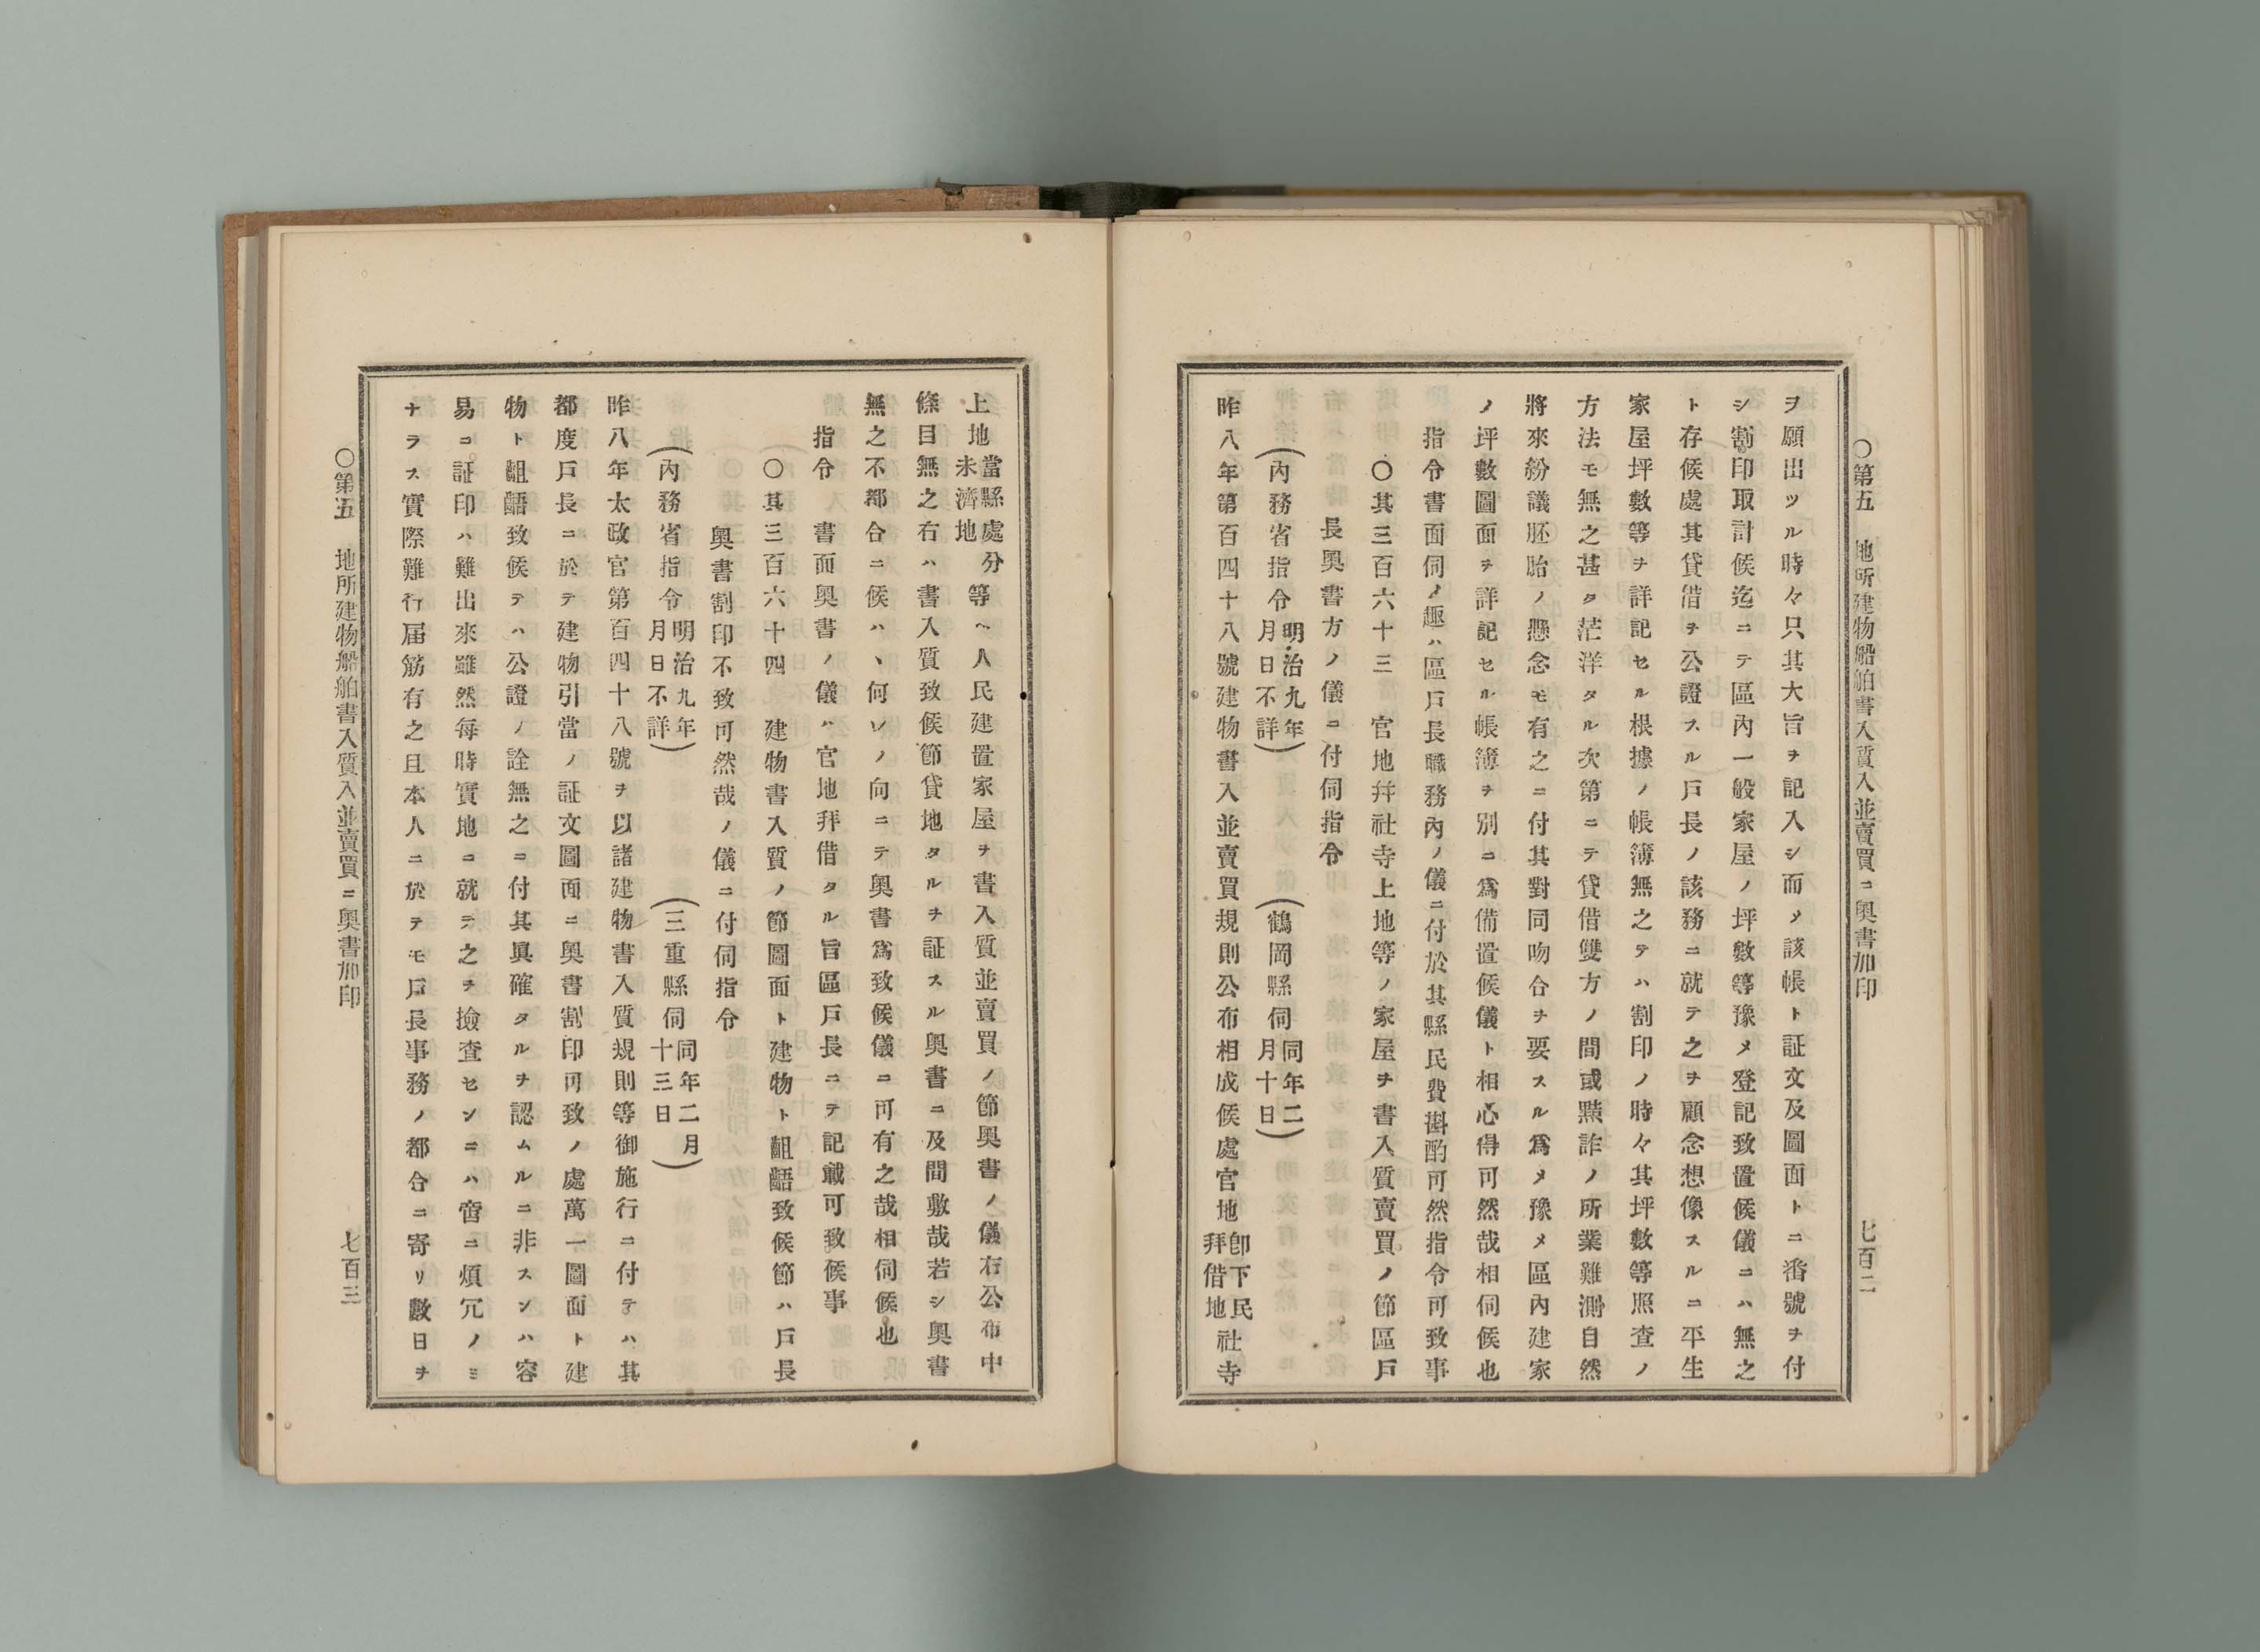 ○第五　地所建物船舶書入質入並賣買ニ奧書加印　七百二
ヲ願出ツル時々只其大旨ヲ記入シ而メ該帳ト証文及圖面トニ番號ヲ付
シ割印取計候迄ニテ區內一般家屋ノ坪數等豫メ登記致置候儀ニハ無之
ト存候處其貸借ヲ公證スル戶長ノ該務ニ就テ之ヲ顧念想像スルニ平生
家屋坪數等ヲ詳記セル根據ノ帳簿無之テハ割印ノ時々其坪數等照査ノ
方法モ無之甚タ茫洋タル次第ニテ貸借雙方ノ間或黠詐ノ所業難測自然
將來紛議胚胎ノ懸念モ有之ニ付其對同吻合ヲ要スル爲メ豫メ區內建家
ノ坪數圖面ヲ詳記セル帳簿ヲ別ニ爲備置候儀ト相心得可然哉相伺候也
指令書面伺ノ趣ハ區戶長職務內ノ儀ニ付於其縣民費斟酌可然指令可致事
○其三百六十三　官地幷社寺上地等ノ家屋ヲ書入質賣買ノ節區戶
長奧書方ノ儀ニ付伺指令
（內務省指令明治九年月日不詳）　（鶴岡縣伺同年二月十日）
昨八年第百四十八號建物書入並賣買規則公布相成候處官地卽下民拜借地社寺
上地當縣處分未濟地等ヘ人民建置家屋ヲ書入質並賣買ノ節奧書ノ儀右公布中
條目無之右ハ書入質致候節貸地タルヲ証スル奧書ニ及間敷哉若シ奧書
無之不都合ニ候ハヽ何レノ向ニテ奧書爲致候儀ニ可有之哉相伺候也
指令　書面奧書ノ儀ハ官地拜借タル旨區戶長ニテ記載可致候事
○其三百六十四　建物書入質ノ節圖面ト建物ト齟齬致候節ハ戶長
奧書割印不致可然哉ノ儀ニ付伺指令
（內務省指令明治九年月日不詳）　（三重縣伺同年二月十三日）
昨八年太政官第百四十八號ヲ以諸建物書入質規則等御施行ニ付テハ其
都度戶長ニ於テ建物引當ノ証文圖面ニ奧書割印可致ノ處萬一圖面ト建
物ト齟齬致候テハ公證ノ詮無之ニ付其眞確タルヲ認ムルニ非スンハ容
易ニ証印ハ難出來雖然每時實地ニ就テ之ヲ撿査センニハ啻ニ煩冗ノミ
ナラス實際難行屆筋有之且本人ニ於テモ戶長事務ノ都合ニ寄リ數日ヲ
○第五　地所建物船舶書入質入並賣買ニ奧書加印　七百三